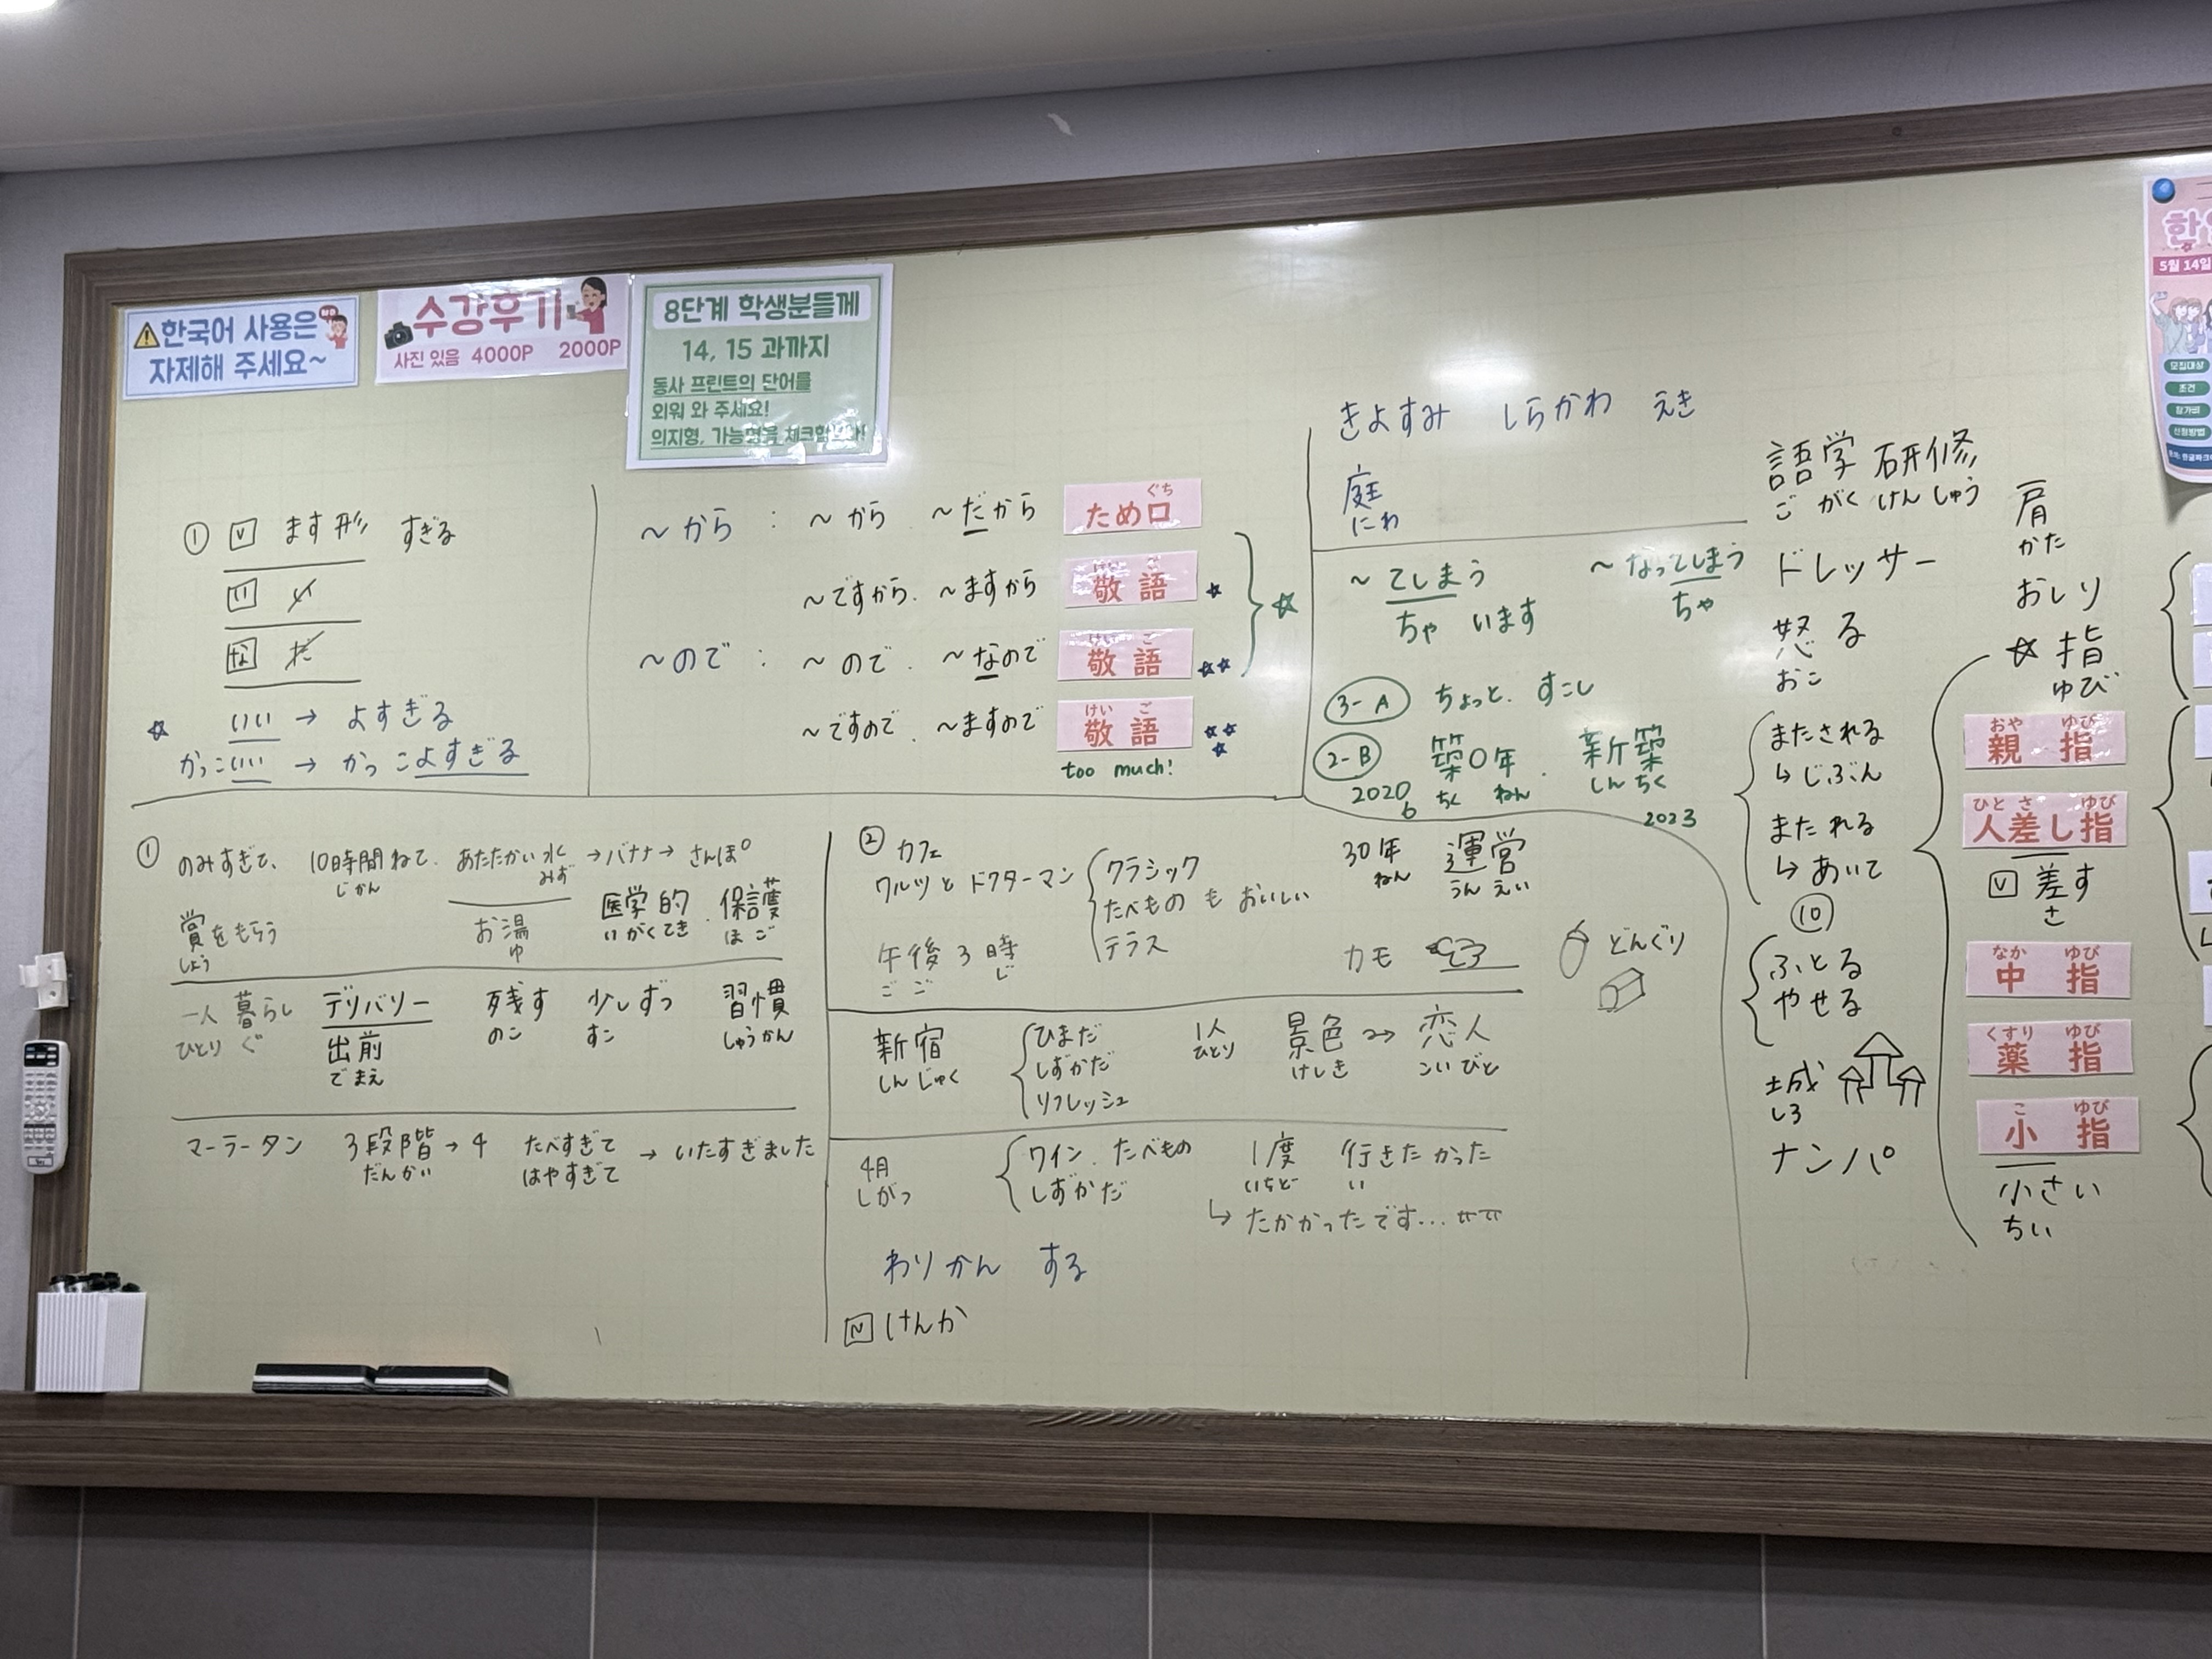 한국어 사용은
자제해 주세요~
수강후기
사진 있음 4000P 2000P
8단계 학생분들께
14, 15 과까지
동사 프린트의 단어를
외워 와 주세요!
의지형, 가능형을
5월 14일
모집대상
조건
참가비
신청방법
① V ます形 すぎる
い い
な だ
☆ いい → よすぎる
かっこいい → かっこよすぎる
~から : ~から ~だから
ぐち
ため口
~ですから. ~ますから
けい ご
敬語 ☆
~ので : ~ので. ~なので
けい ご
敬語 ☆☆
~ですので. ~ますので
けい ご
敬語 ☆☆☆
too much!
☆
きよすみ しらかわ えき
庭
にわ
~てしまう ~なってしまう
ちゃ います ちゃ
3-A ちょっと. すこし
2-B 築0年. 新築
2020 ちく ねん しん ちく
6 2023
① のみすぎて、 10時間ねて. あたたかい水 → バナナ → さんぽ
じかん みず
賞をもらう お湯 医学的. 保護
しょう ゆ いがくてき ほご
一人暮らし デリバリー 残す 少しずつ 習慣
ひとり ぐ 出前 のこ すこ しゅうかん
でまえ
マーラータン 3段階 → 4 たべすぎて → いたすぎました
だんかい はやすぎて
② カフェ
ワルツと ドクターマン クラシック
たべものも おいしい
テラス
午後3時
ご ご じ
30年 運営
ねん うん えい
カモ どんぐり
新宿 ひまだ 1人 景色 恋人
しんじゅく しずかだ ひとり けしき こいびと
リフレッシュ
4月 ワイン. たべもの 1度 行きたかった
しがつ しずかだ いちど い
↳ たかかったです... ㅠㅠ
わりかん する
N けんか
語学研修
ご がく けん しゅう
ドレッサー
怒る
おこ
またされる
↳ じぶん
またれる
↳ あいて
⑩
ふとる
やせる
城
しろ
ナンパ
肩
かた
おしり
☆ 指
ゆび
おや ゆび
親指
ひと さ ゆび
人差し指
V 差す
さ
なか ゆび
中指
くすり ゆび
薬指
こ ゆび
小指
小さい
ちい